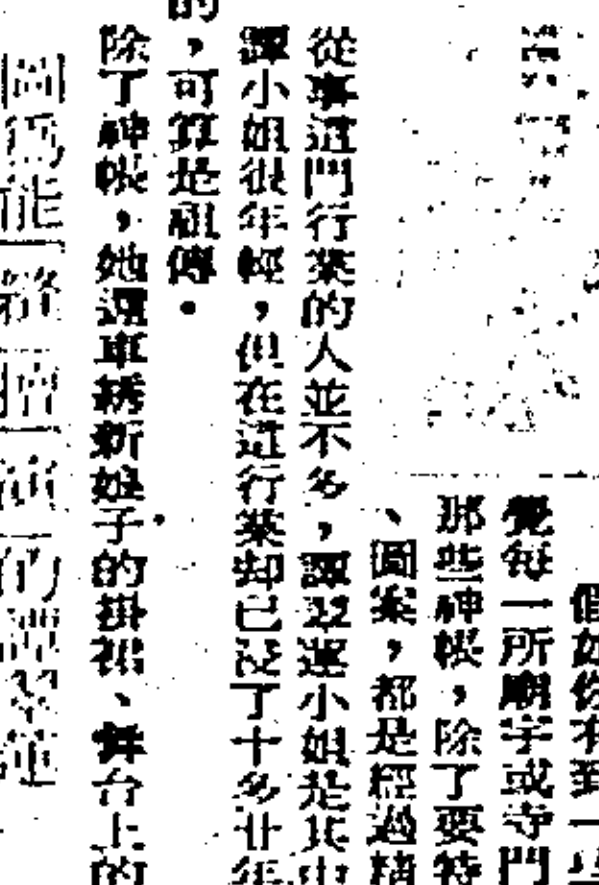 假如你有到一些
覺每一所廟宇或寺門
那些神帳，除了要特
、圖案，都是經過精
從事這門行業的人並不多，譚翠蓮小姐是其中
譚小姐很年輕，但在這行業却已浸了十多廿年
的，可算是祖傳。
除了神帳，她還車綉新娘子的掛裙、舞台上的
的譚翠蓮